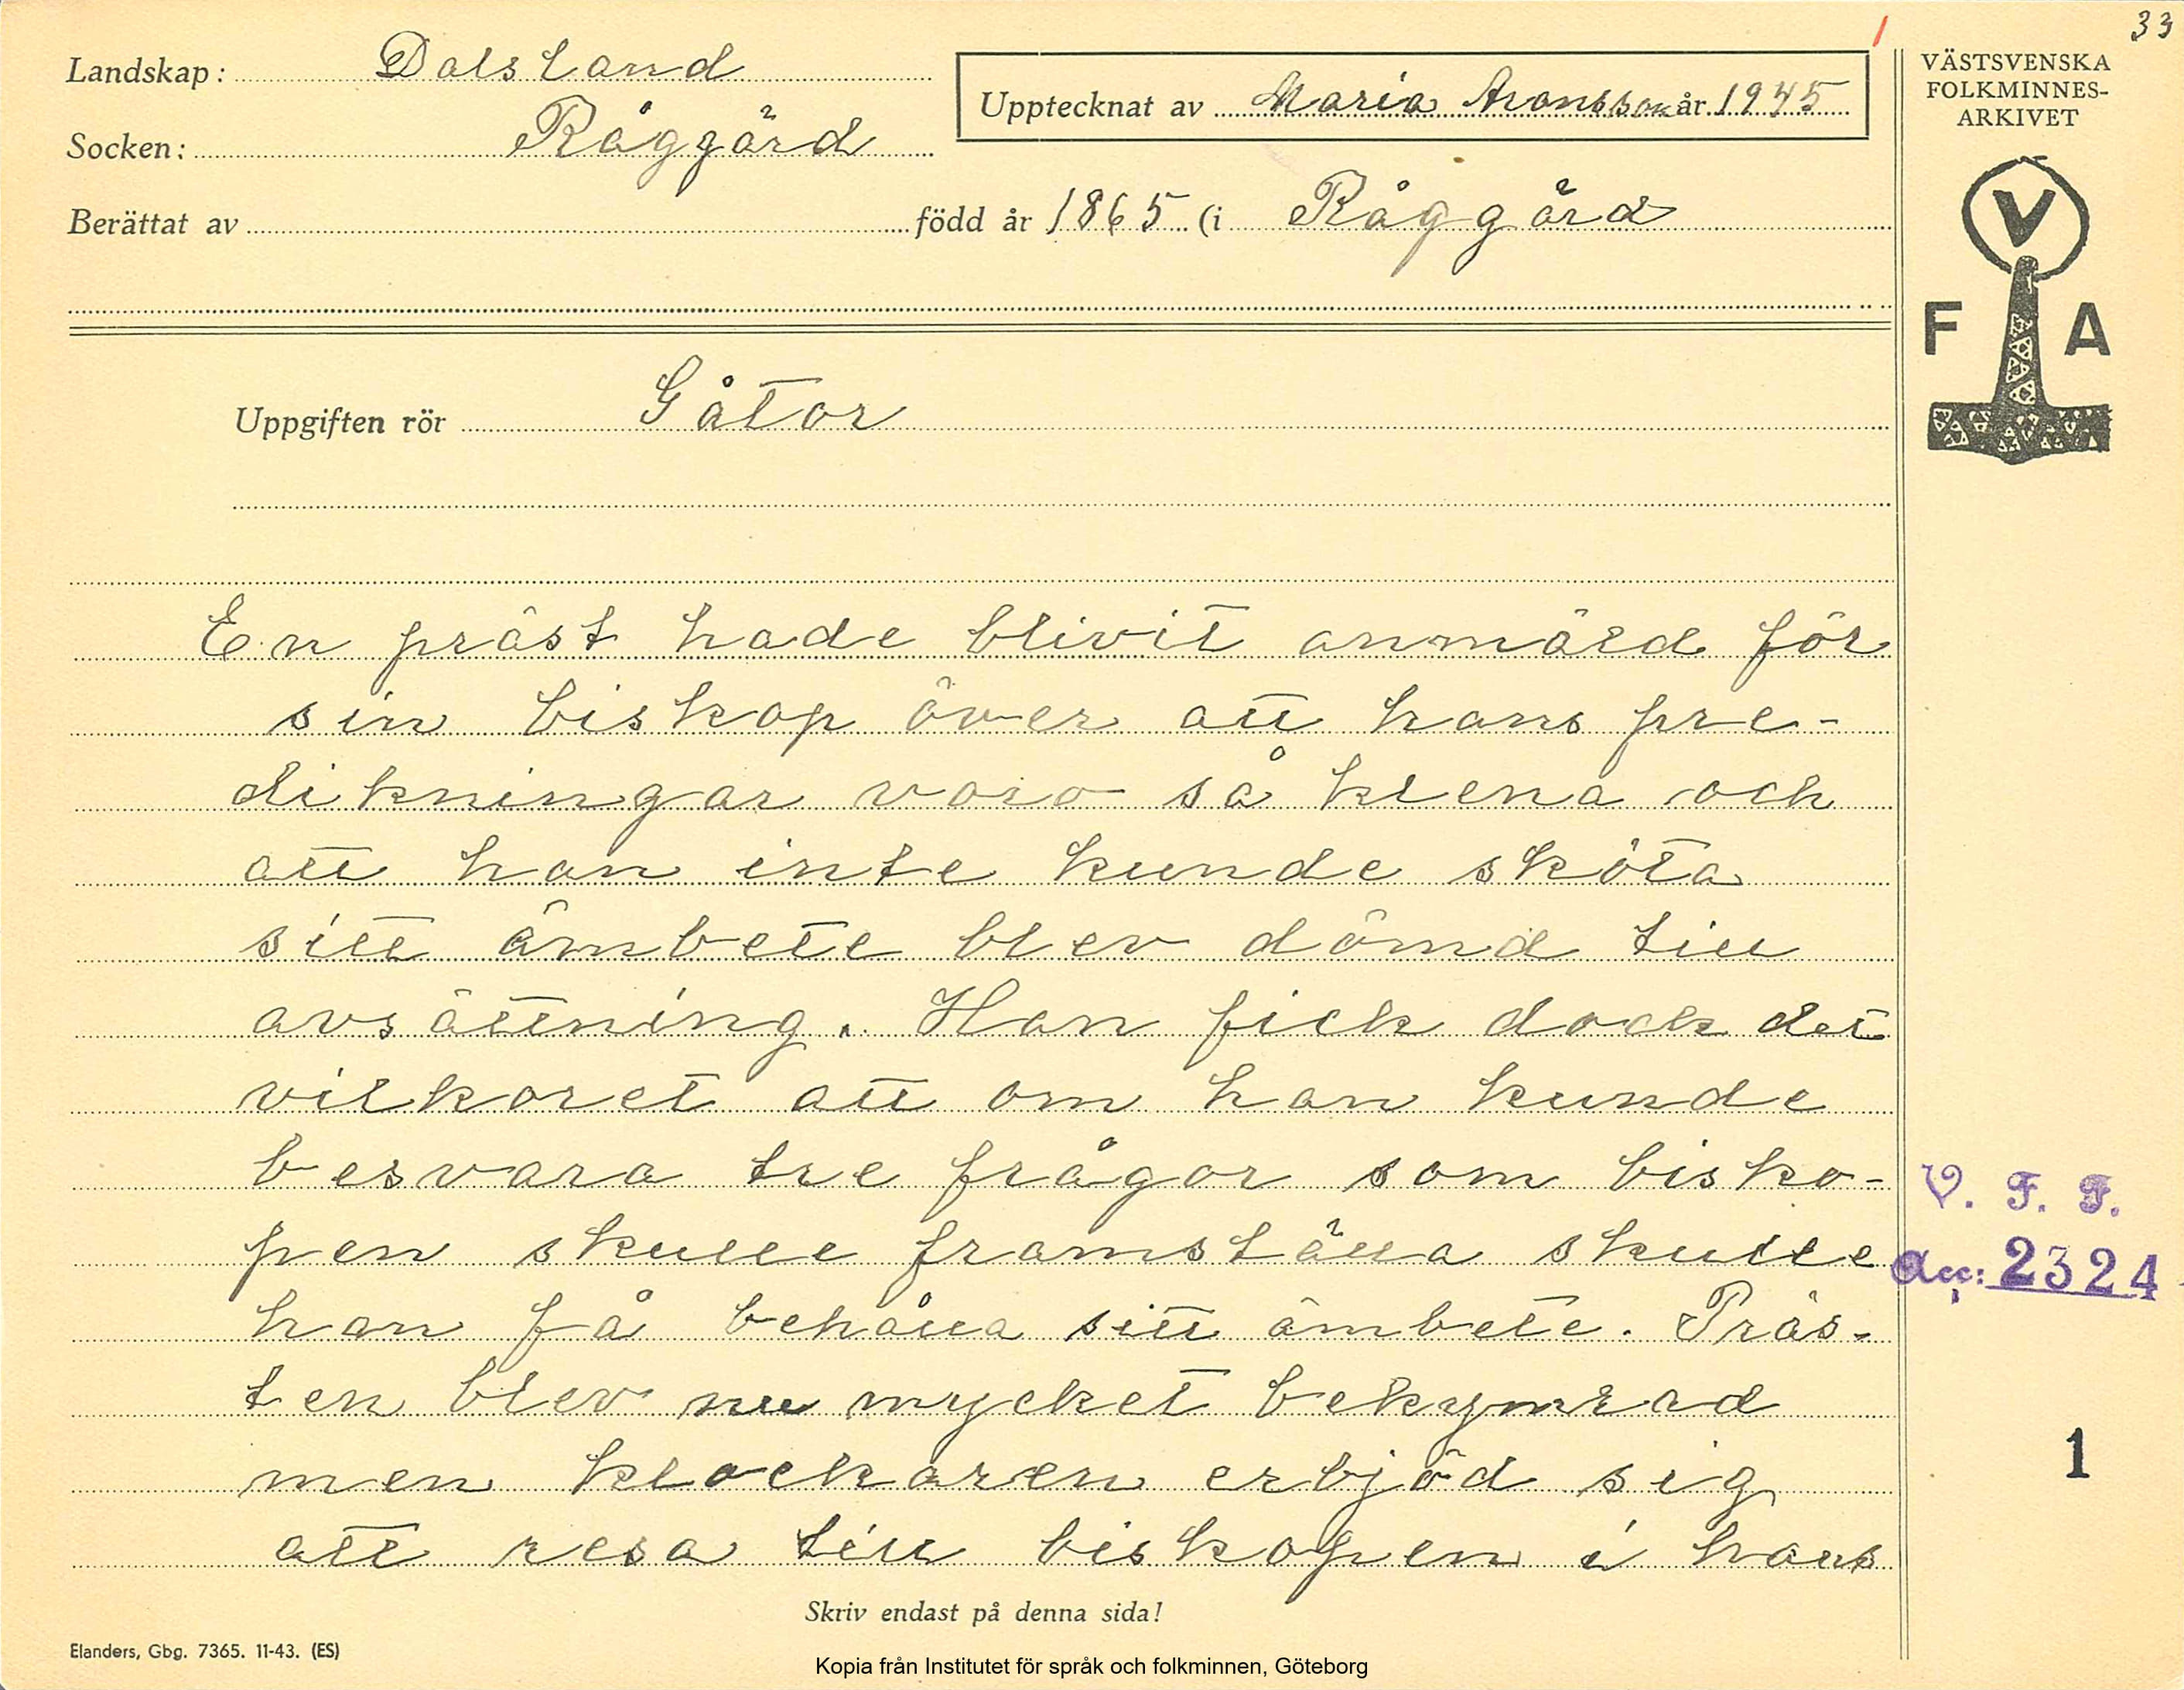 33
Landskap: Dalsland
Upptecknat av Maria Aronsson år 1945
VÄSTSVENSKA
FOLKMINNES-
ARKIVET
Socken: Råggärd
Berättat av född år 1865 (i Råggärd
V
F A
Uppgiften rör Gåtor
En präst hade blivit anmäld för
sin biskop över att hans pre-
dikningar voro så klena och
att han inte kunde sköta
sitt ämbete blev dömd till
avsättning. Han fick dock det
vilkoret att om han kunde
besvara tre frågor som bisko-
pen skulle framställa skulle
han få behålla sitt ämbete. Präs-
ten blev nu mycket bekymrad
men klockaren erbjöd sig
att resa till biskopen i hans
V. F. F.
Acc: 2324
1
Skriv endast på denna sida!
Elanders, Gbg. 7365. 11-43. (ES)
Kopia från Institutet för språk och folkminnen, Göteborg